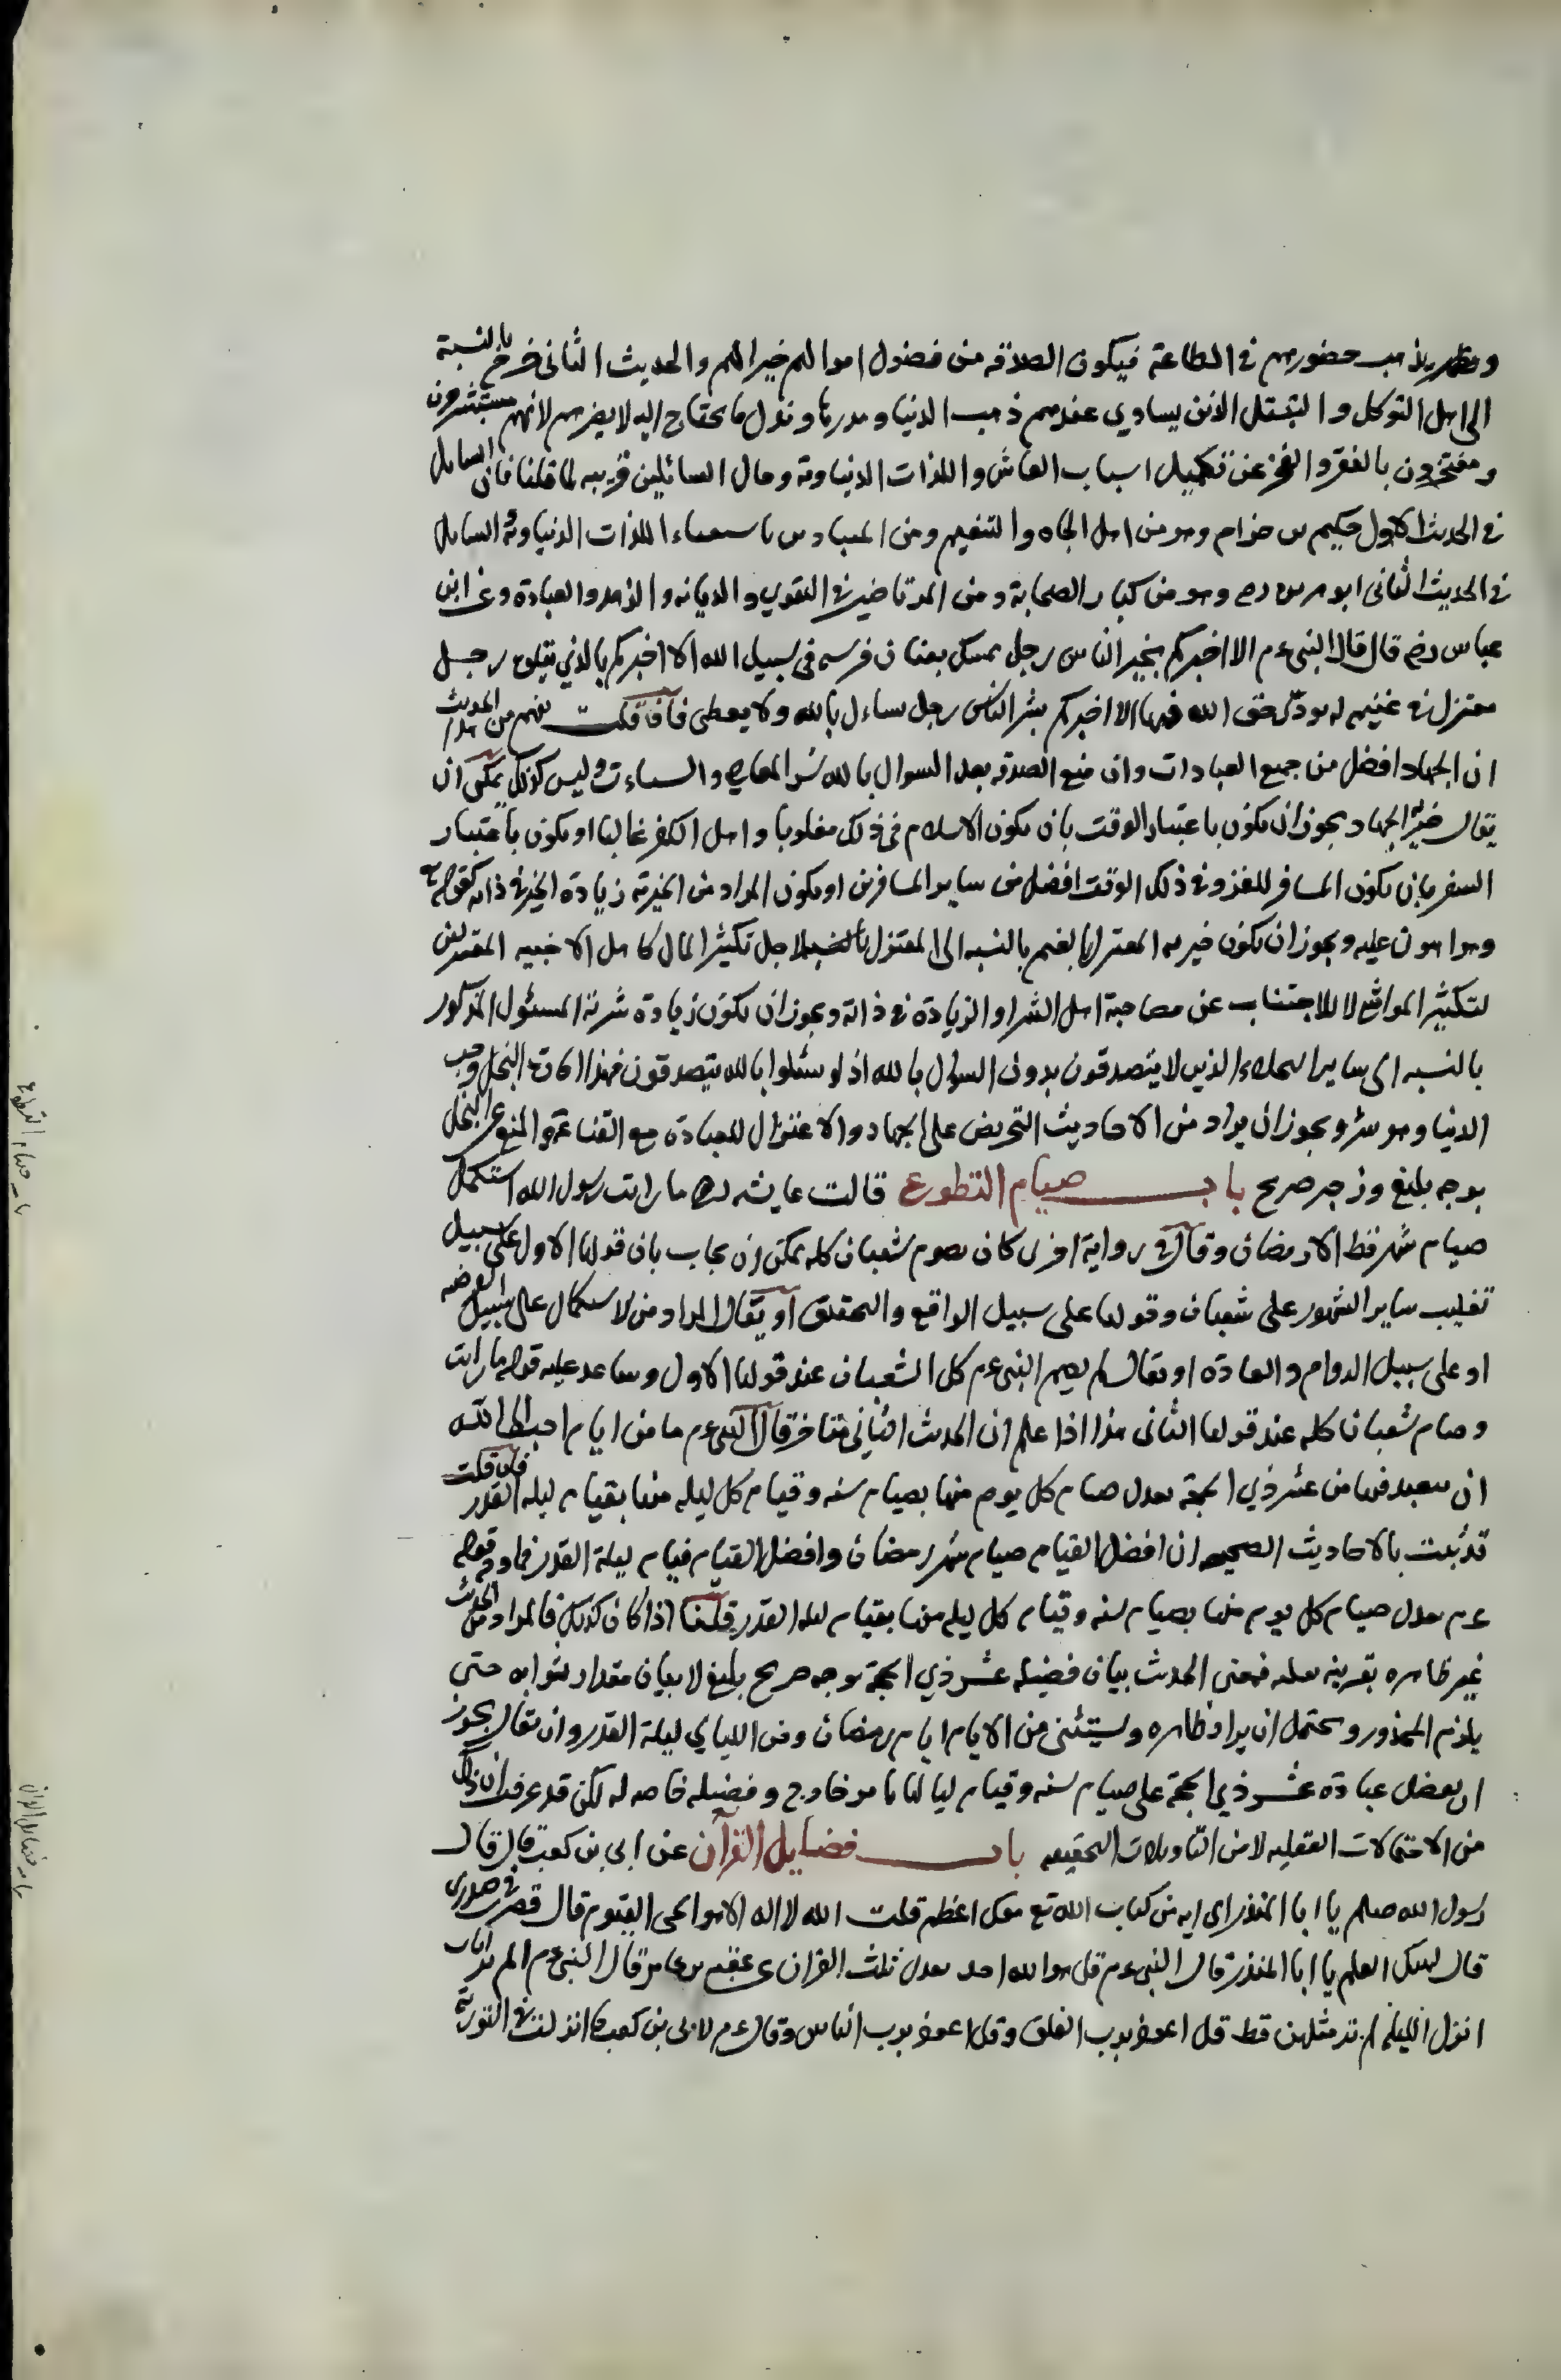 ويذهب حضورهم في الطاعة فيكون الصدقه من فضول اموالهم خيرا لهم والحديث الثاني خرج بالنسبة
الى اهل التوكل والتبتل الذين يساوي عندهم ذهب الدنيا ومدرها وبذل ما يحتاج اليه لا يضرهم لانهم مستبشرون
ومفتخرون بالفقر والعجز عن تكميل اسباب المعاش واللذات الدنياوية وحال السائلين قرينه لما قلنا فان السايل
في الحديث الاول حكيم بن حزام وهو من اهل الجاه والتنعيم ومن اللذات الدنياوية والسايل
في الحديث الثاني ابو هريره رضـ وهو من كبار الصحابة ومن المرتاضين في التقوي والديانه والزهد والعبادة وعن ابن
عباس رضـ قال قال النبي عم الا اخبركم بخير الناس رجل ممسك بعنان فرسه في سبيل الله الا اخبركم بالذي يتلوه رجل
معتزل في غنيمه له يودي حق الله فيها الا اخبركم بشر الناس رجل يساءل بالله ولا يعطي فان قلت يفهم من هذا الحديث
ان الجهاد افضل من جميع العبادات وان منع الصدقه بعد السوال بالله شر المعاصي والسياءت وليس كذلك يمكن ان
يقال خير الجهاد يجوز ان يكون باعتبار الوقت بان يكون الاسلام في ذلك مغلوبا واهل الكفر غالبا او يكون باعتبار
السفر بان يكون المسافر للغزو في ذلك الوقت افضل من ساير المسافرين او يكون المراد من الخيرية زيادة الخير في ذاته كقوله تع
وهو اهون عليه ويجوز ان يكون خيريه المعتزل بالغنم بالنسبه الى المعتزل لاجل تكثير المال
لتكثير المواشي لا للاجتناب عن مصاحبة اهل الشر او الزيادة في ذاته ويجوز ان يكون زيادة شرية المسئول المذكور
بالنسبه الى ساير البخلاء الذين لا يتصدقون بدون السؤال بالله اذ لو سئلوا بالله يتصدقون فهذا البخل وحب
الدنيا وهو شر ويجوز ان يراد من الاحاديث التحريض على الجهاد والاعتزال للعبادة مع القناعة والمنع عن البخل
بوجه بليغ وزجر صريح باب صيام التطوع قالت عايشه رضـ ما رايت رسول الله استكمل
صيام شهر قط الا رمضان وقالت في رواية اخرى كان يصوم شعبان كله يمكن ان يجاب بان قولها الاول على سبيل
تغليب ساير الشهور على شعبان وقولها على سبيل الواقع والتحقيق او يقال المراد من الاستكمال على سبيل الفرضيه
او على سبيل الدوام والعادة او يقال لم يصم النبي عم كل الشعبان عند قولها الاول وساعد عليه قولها ما رايت
وصام شعبان كله عند قولها الثاني هذا اذا علم ان الحديث الثاني متاخر قال النبي عم ما من ايام احب الى الله
ان يتعبد فيها من عشر ذي الحجة يعدل صيام كل يوم منها بصيام سنه وقيام كل ليله منها بقيام ليله القدر فان قلت
قد ثبت بالاحاديث الصحيحه ان افضل الصيام صيام شهر رمضان وافضل القيام قيام ليلة القدر فما وجه قوله
عم يعدل صيام كل يوم منها بصيام سنه وقيام كل ليله منها بقيام ليله القدر قلنا اذا كان كذلك فالمراد من الحديث
غير ظاهره بقرينه فمعنى الحديث بيان فضيله عشر ذي الحجة بوجه صريح بليغ لا بيان مقدار ثوابه حتى
يلزم المحذور ويحتمل ان يراد ظاهره ويستثنى من الايام ايام رمضان ومن الليالي ليلة القدر وان يقال يجوز
ان يفضل عبادة عشر ذي الحجة على صيام سنه وقيام لياليها بامر خارج وفضيله خاصه له لكن قد عرفت ان ذلك
من الاحتمالات العقليه لا من التاويلات الحقيقيه باب فضايل القرآن عن ابي بن كعب قال قال
رسول الله صلعم يا ابا المنذر اي ايه من كتاب الله تع معك اعظم قلت الله لا اله الا هو الحي القيوم قال فضرب في صدري
قال ليهنك العلم يا ابا المنذر قال النبي عم قل هو الله احد يعدل ثلث القران عن عقبه بن عامر قال النبي عم الم تر ايات
انزل الليلة لم تر مثلهن قط قل اعوذ برب الفلق وقل اعوذ برب الناس وقال عم لابي بن كعب ما انزلت في التورية
باب صيام التطوع
باب فضايل القران